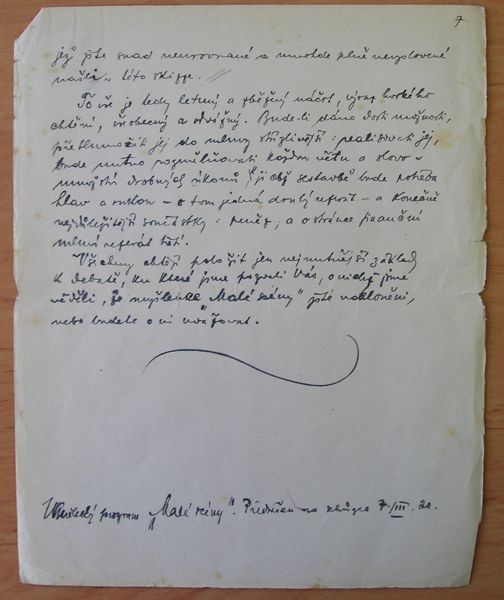 7
jež jste snad neurovnané a mnohde plně nevyslovené
našli v této skizze.
To vše je tedy letmý a zběžný náčrt, výraz horkého
chtění, všeobecný a odvážný. Bude-li dáno dosti možností,
přetlumočit jej do mluvy střízlivější: realisovati jej,
bude nutno rozmělňovati každou větu a slovo v
množství drobných úkonů, k jejichž sestavbě bude potřeba
hlav a rukou – o tom jedná druhý referát – a konečně
nejdůležitější součástky: peněz, a o stránce finanční
mluví referát třetí.
Všechny chtějí položit jen nejnutnější základy
k debatě, ku které jsme pozvali Vás, o nichž jsme
věděli, že myšlence „Malé scény" jste nakloněni,
nebo budete o ní uvažovat.
Umělecký program „Malé scény". Přednesen na schůzce 7./III. 20.